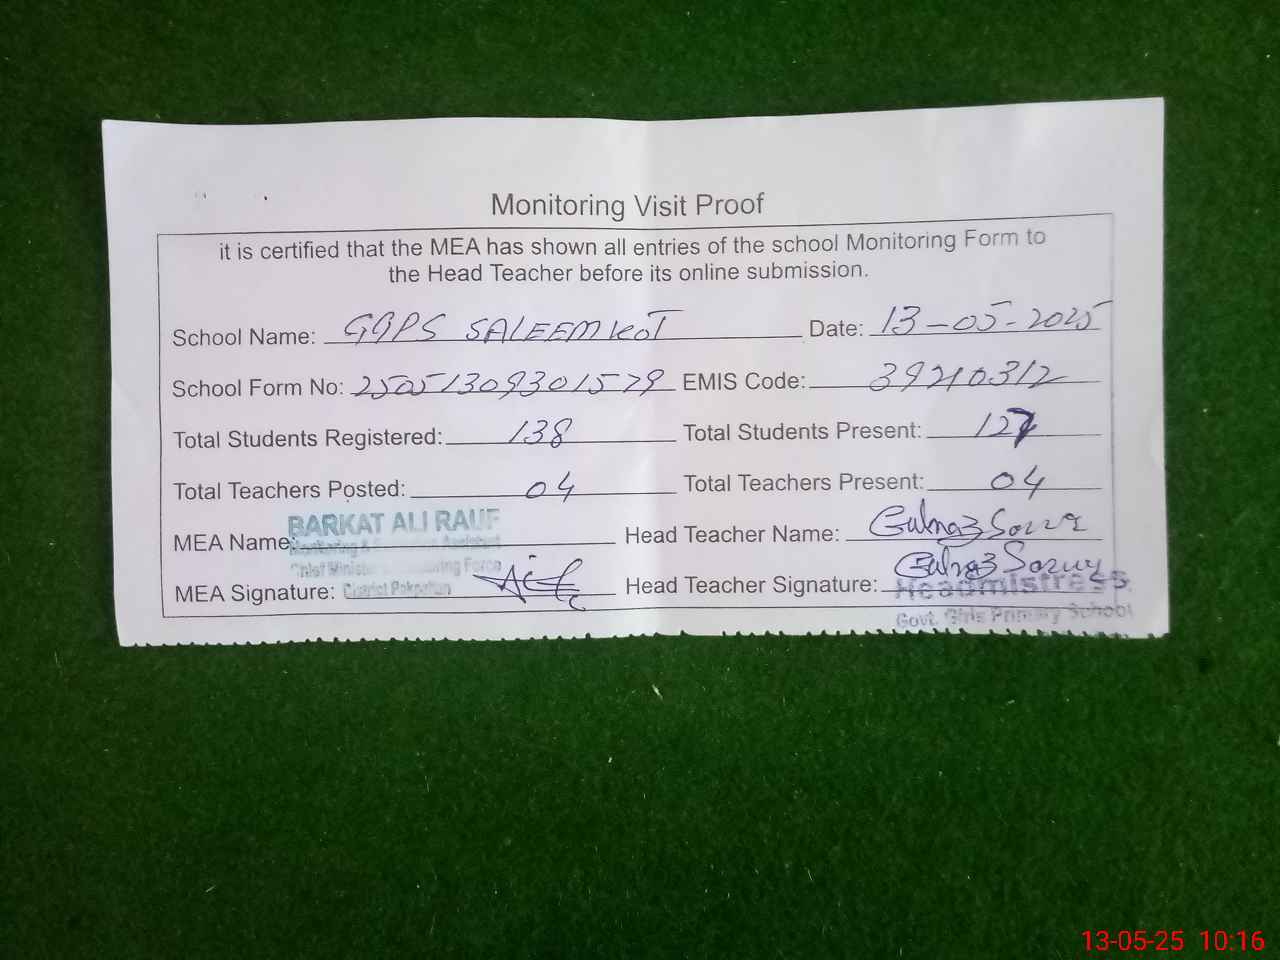 Monitoring Visit Proof
it is certified that the MEA has shown all entries of the school Monitoring Form to
the Head Teacher before its online submission.
School Name: GGPS SALEEMKOT Date: 13-05-2025
School Form No: EMIS Code: 39210312
Total Students Registered: 138 Total Students Present: 127
Total Teachers Posted: 04 Total Teachers Present: 04
BARKAT ALI RAUF
MEA Name Head Teacher Name: Gulnaz
Chief Force
District Pakpattan
MEA Signature: Head Teacher Signature: Gulnaz
Headmistress
Govt. Girls Primary School
13-05-25 10:16